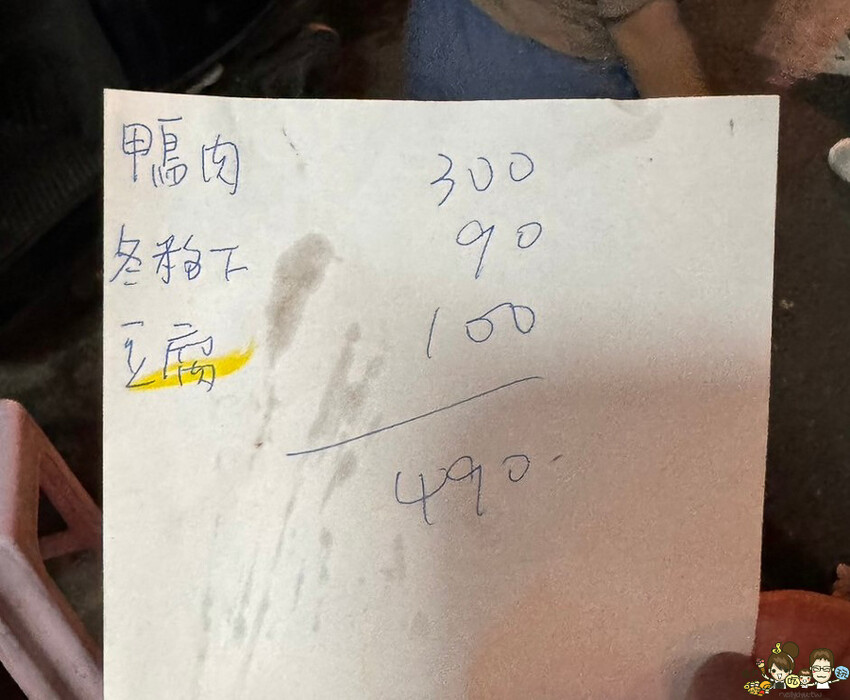 鴨肉 300
冬粉下 90
豆腐 100
490